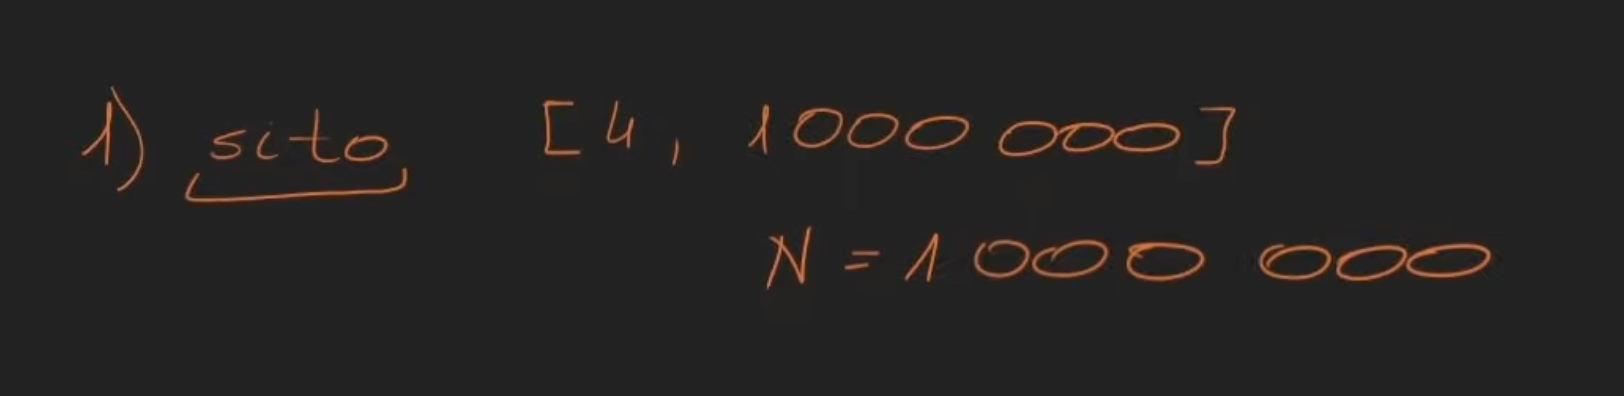 1) sito [4, 1000 000]
N = 1000 000